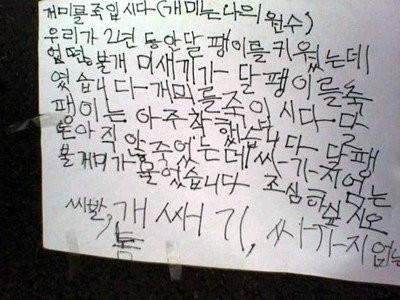 개미를죽입시다(개미는나의 원수)
우리가 2년 동안달 팽이를 키웠는데
엄떤불개 미새끼가 달 팽이를죽
였습니다-개미를죽입 시다-달
팽이는 아주착했습니다 달팽
은아직안죽었는데싸-가-지없는
불개미가물었습니다 조심하싶시오
씨발,개 싸 기, 싸가-지없는
놈